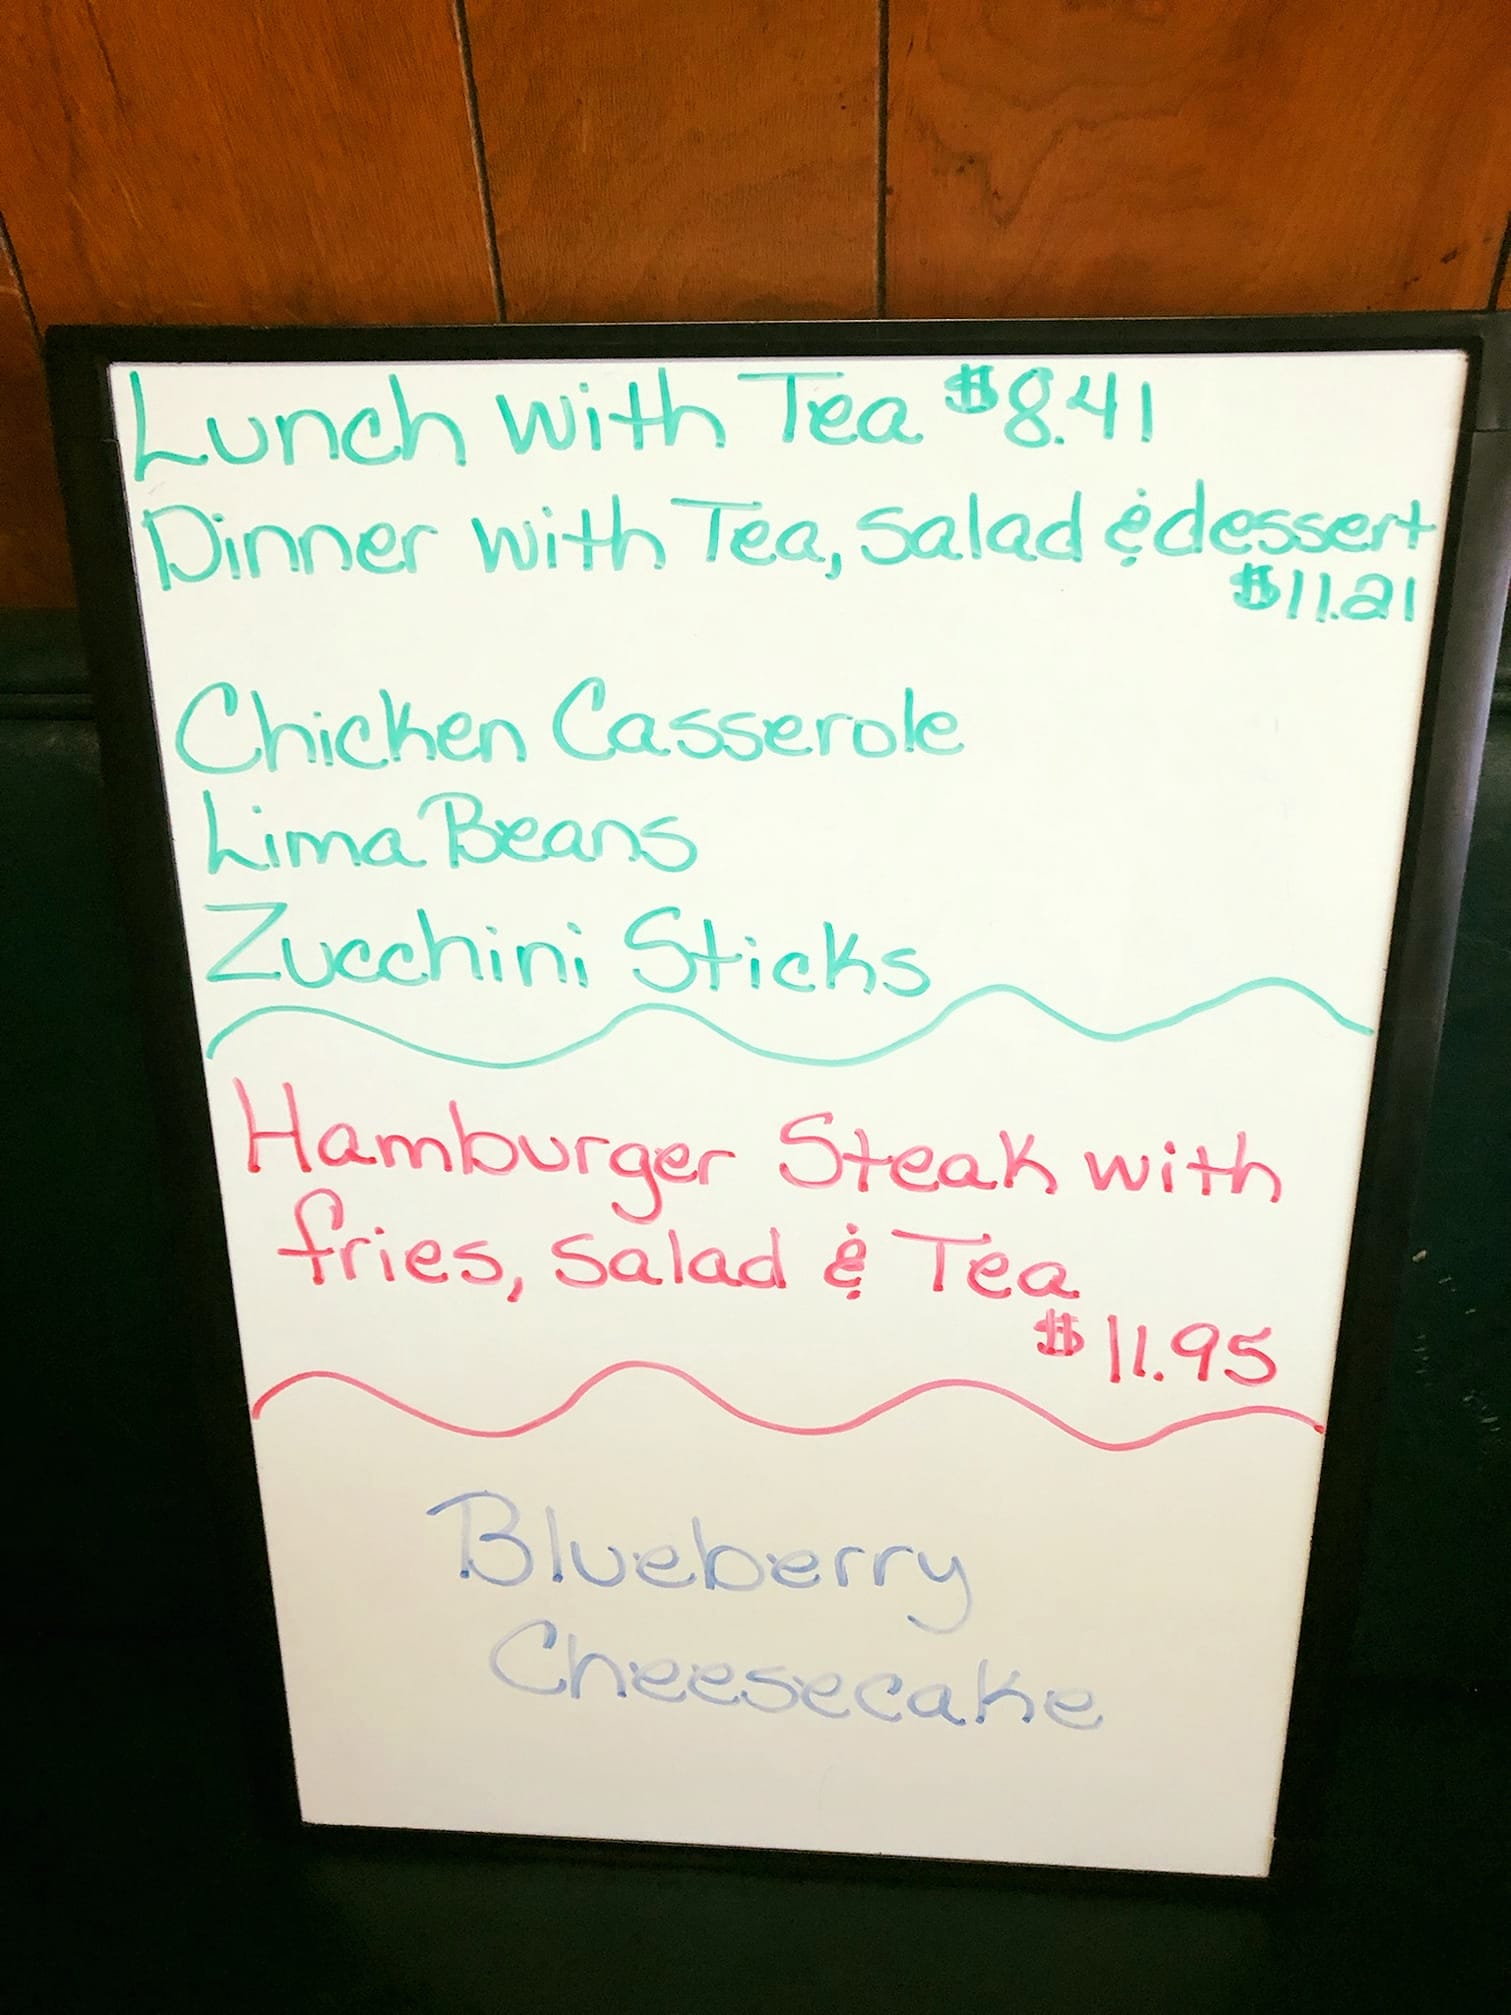 Lunch with Tea $8.41
Dinner with Tea, Salad & dessert
$11.21
Chicken Casserole
Lima Beans
Zucchini Sticks
Hamburger Steak with
fries, Salad & Tea
$11.95
Blueberry
Cheesecake